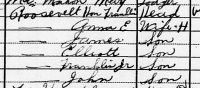 Mc Mahon Mary Lodger
Roosevelt Hon Frankli Head
— Anna E Wife-H
— James Son
— Elliott Son
— Franklin Jr Son
— John Son